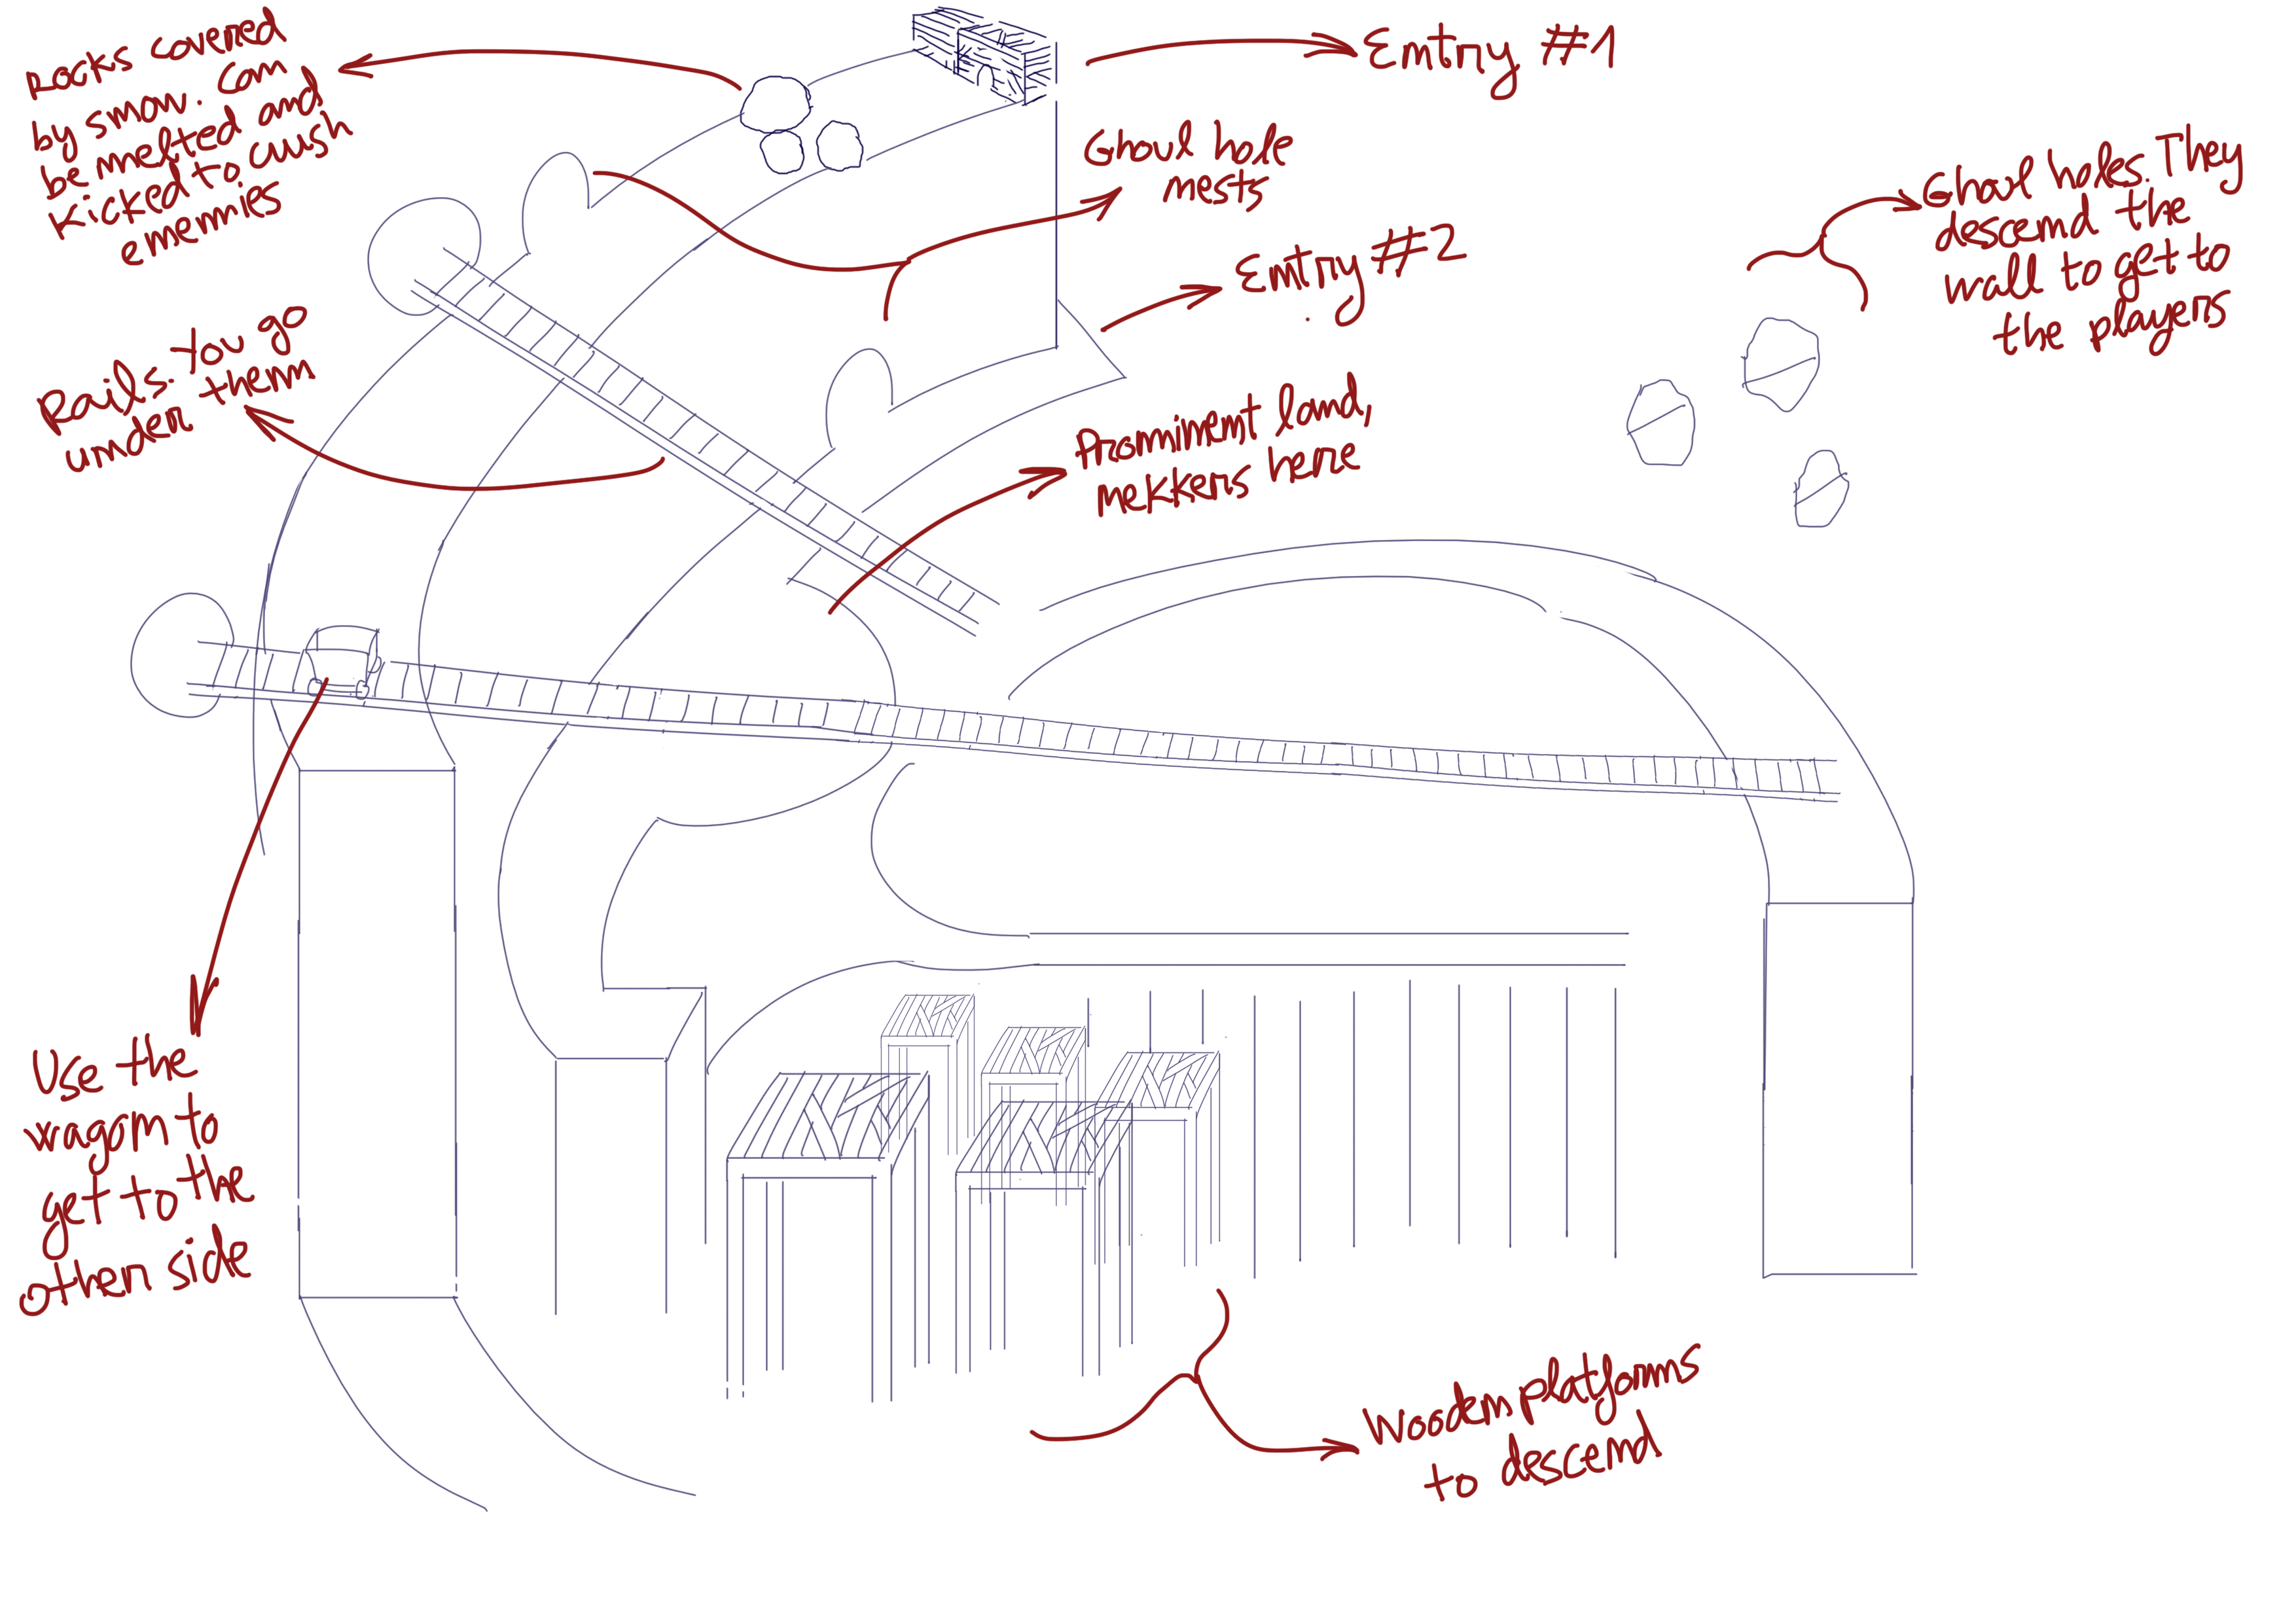 Rocks covered
by snow. Can
be melted and
kicked to crush
enemies
Entry #1
Ghoul hole
nests
Ghoul holes. They
descend the
wall to get to
the players
Entry #2
Rails. You go
under them
Prominent land,
nekkers here
Use the
wagon to
get to the
other side
Wooden platforms
to descend